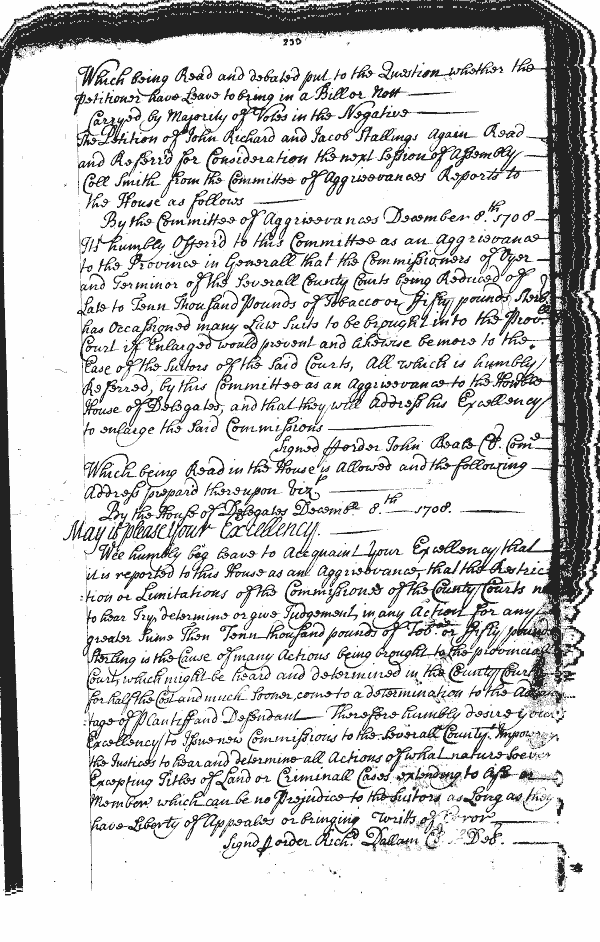 230
Which being Read and debated put to the Question whether the
Petitioner have Leave to bring in a Bill or Nott
Carryed by Majority of Votes in the Negative
The Petition of John Richard and Jacob Stallings again Read
and Referrd for Consideration the next Session of Assembly
Coll Smith from the Committee of Aggrieevances Reports to
the House as follows
By the Committee of Aggrieevances December 8.th 1708
Its humbly Offerrd to this Committee as an Aggrievance
to the Province in Generall that the Commissioners of Oyer
and Terminor of the Severall County Courts being Reduced of
Late to Tenn Thousand Pounds of Tobacco or fifty pounds Sterl
has Occassioned many Late Suits to be brought into the Prov.ll
Court if Enlarged would prevent and likewise be more to the
Ease of the Suitors of the Said Courts, All which is humbly
Referred, by this Committee as an Aggrievance to the Honble
House of Delegates, and that they will Address his Excellency
to enlarge the Said Commissions
Signed p order John Beale Cl. Com
Which being Read in the House is Allowed and the following
Address prepard thereupon Vizt
By the House of Delegates Decembr 8.th 1708.
May it please your Excellency.
Wee humbly beg leave to Acquaint your Excellency that
it is reported to this House as an Aggrievance, that the Restric
:tion or Limitations of the Commissiones of the County Courts n
to hear Try, determine or give Judgement, in any Action for any
greater Sume Then Tenn thousand pounds of Tob.o or fifty pounds
Sterling is the Cause of many Actions being brought to the provinciall
Court, which might be heard and determined in the County Court
for half the Cost and much Sooner, come to a determination to the Advan
:tage of Plantiff and Defendant Therefore humbly desire your
Excellency to Issue new Commissions to the Severall County.s Impowering
the Justices to hear and determine all Actions of what nature soever
Excepting Titles of Land or Criminall Cases extending to life or
Member which can be no Prejudice to the Suitors as Long as they
have Liberty of Appeales or bringing Writs of Error
Signd p order Rich.d Dallam Cl. Del.